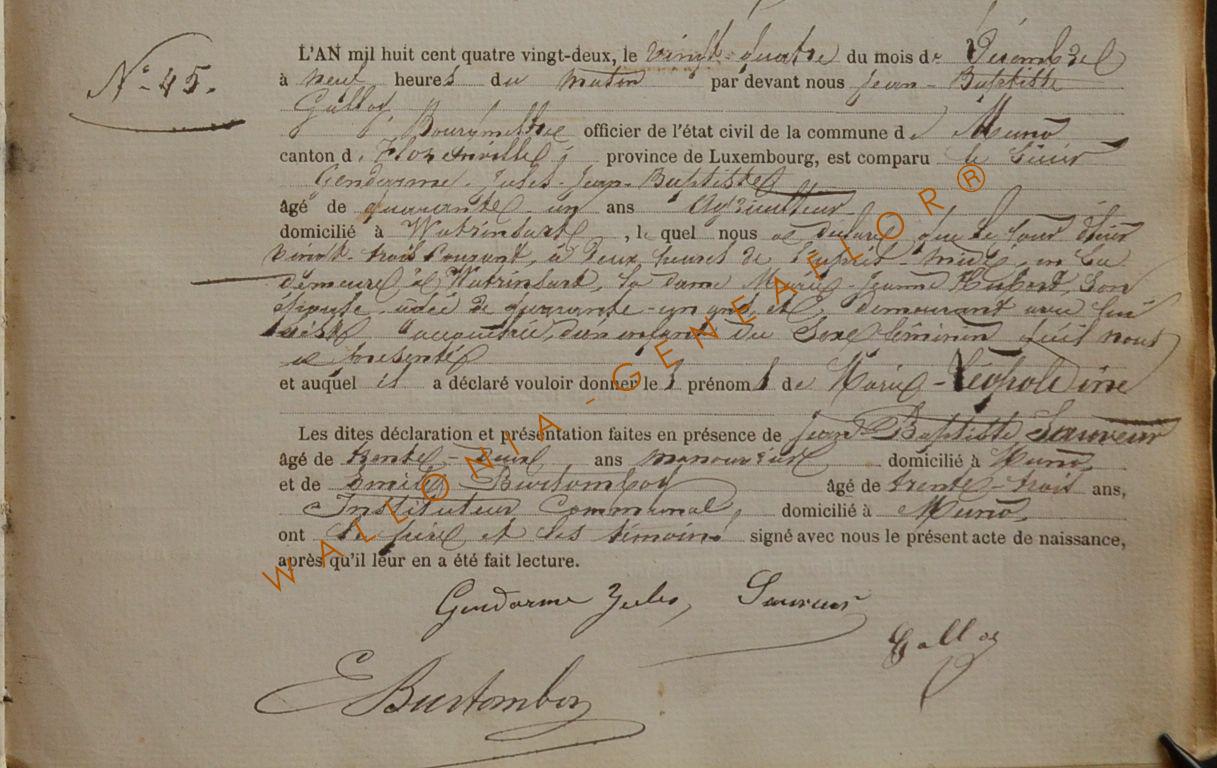 N° 45.
L'AN mil huit cent quatre vingt-deux, le vingt-quatre du mois de Décembre
à neuf heures du matin par devant nous Jean-Baptiste
Galloy
Bourgmestre officier de l'état civil de la commune de Muno
canton de Florenville, province de Luxembourg, est comparu le Sieur
Gendarme Jules-Jean-Baptiste
âgé de quarante un ans Agriculteur
domicilié à Watrinsart, lequel nous a déclaré que le jour d'hier
vingt-trois Courant, à deux heures de l'après-midi, en sa
demeure à Watrinsart, la dame Marie-Jeanne Hubert, son
épouse, âgée de quarante-un ans, et demeurant avec lui
est accouchée d'un enfant du sexe féminin qu'il nous
a présenté
et auquel il a déclaré vouloir donner les prénoms de Marie-Léopoldine
Les dites déclaration et présentation faites en présence de Jean Baptiste Sauveur
âgé de trente-deux ans manouvrier domicilié à Muno
et de Emile Burtomboy âgé de trente-trois ans,
Instituteur Communal, domicilié à Muno,
ont le père et les témoins signé avec nous le présent acte de naissance,
après qu'il leur en a été fait lecture.
Gendarme Jules, Sauveur
Galloy
E Burtomboy
WALLONIA-GENEAELOR®